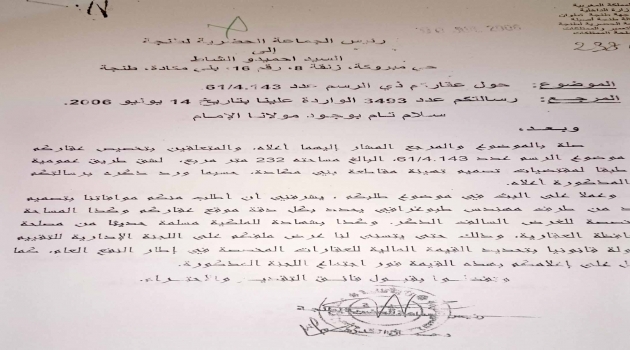 المملكة المغربية
وزارة الداخلية
رئيس الجماعة الحضرية لطنجة
إلى
السيد احميدو الشاط
حي مبروكة، زنقة 8، رقم 16، بني مكادة، طنجة
الموضوع: حول عقاركم ذي الرسم عدد 61/4.143.
المرجع: رسالتكم عدد 3493 الواردة علينا بتاريخ 14 يونيو 2006.
سلام تام بوجود مولانا الإمام
وبعد،
صلة بالموضوع والمرجع المشار إليهما أعلاه، والمتعلقين بتخصيص عقاركم
موضوع الرسم عدد 61/4.143، البالغ مساحته 232 متر مربع، لشق طريق عمومية
طبقا لمقتضيات تصميم تهيئة مقاطعة بني مكادة، حسبما ورد ذكره برسالتكم
المذكورة أعلاه.
وعملا على البث في موضوع طلبكم، يشرفني أن أطلب منكم موافاتنا بتصميم
من طرف مهندس طبوغرافي يحدد بكل دقة موقع عقاركم وكذا المساحة
المخصصة للغرض السالف الذكر، وكذا بشهادة الملكية مسلمة حديثا من مصلحة
المحافظة العقارية، وذلك حتى يتسنى لنا عرض ملفكم على اللجنة الإدارية للتقييم
قانونيا بتحديد القيمة المالية للعقارات المخصصة في إطار النفع العام، كما
على إعلامكم بهذه القيمة فور اجتماع اللجنة المذكورة.
وتفضلوا بقبول فائق التقدير والاحترام.